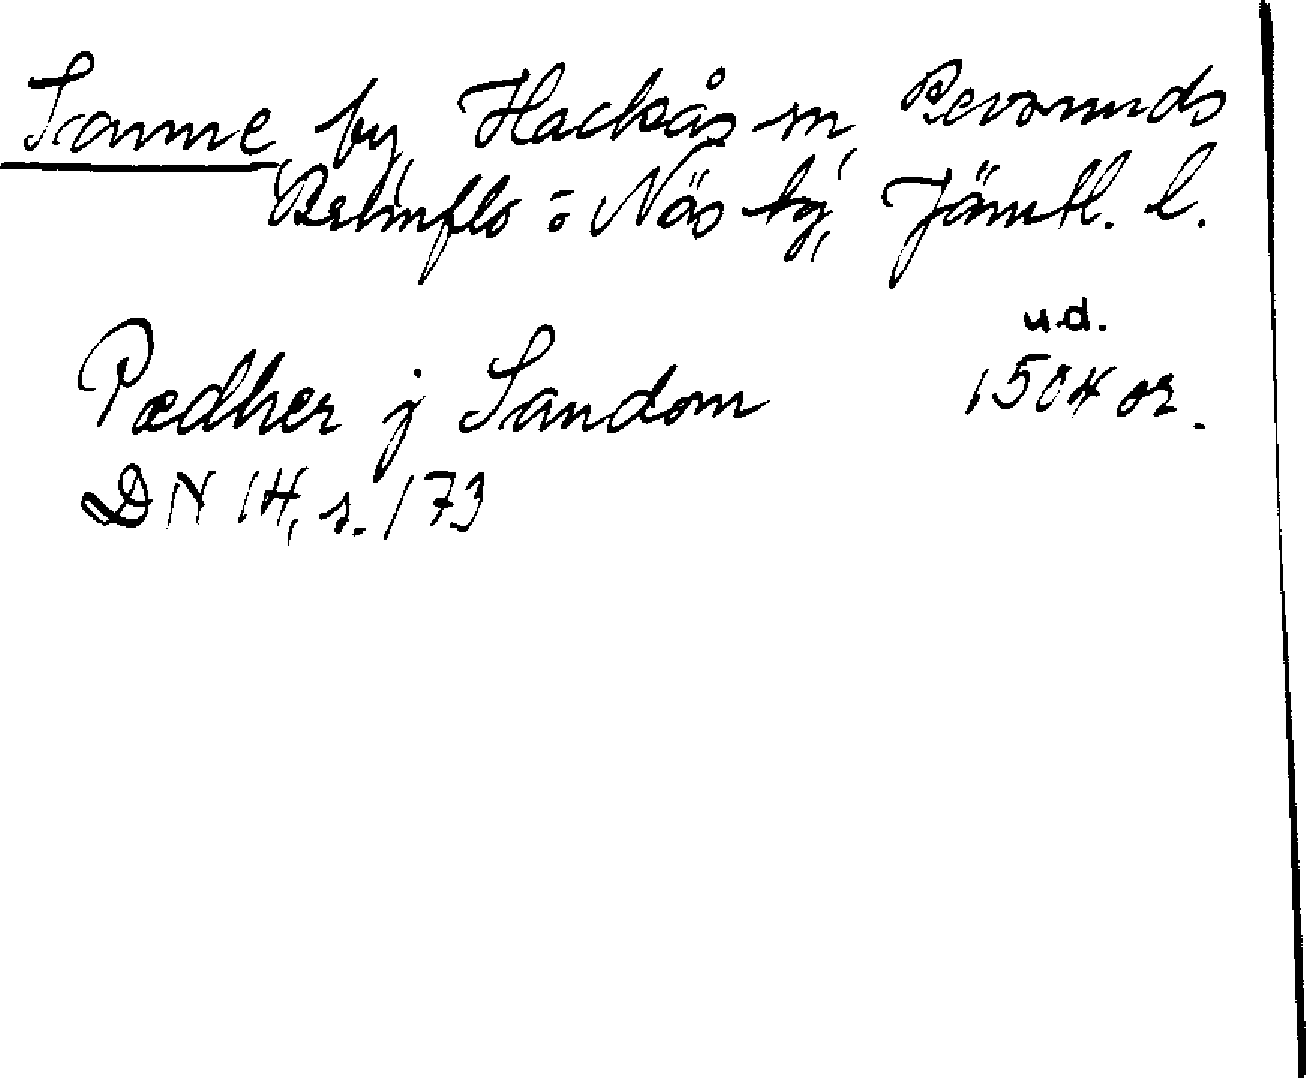 Sanne by, Hackås sn, Revsunds
Brunflo o Näs tg, Jämtl. l.
u.d.
Pædher j Sandom 1504 or.
DN 14, s. 173